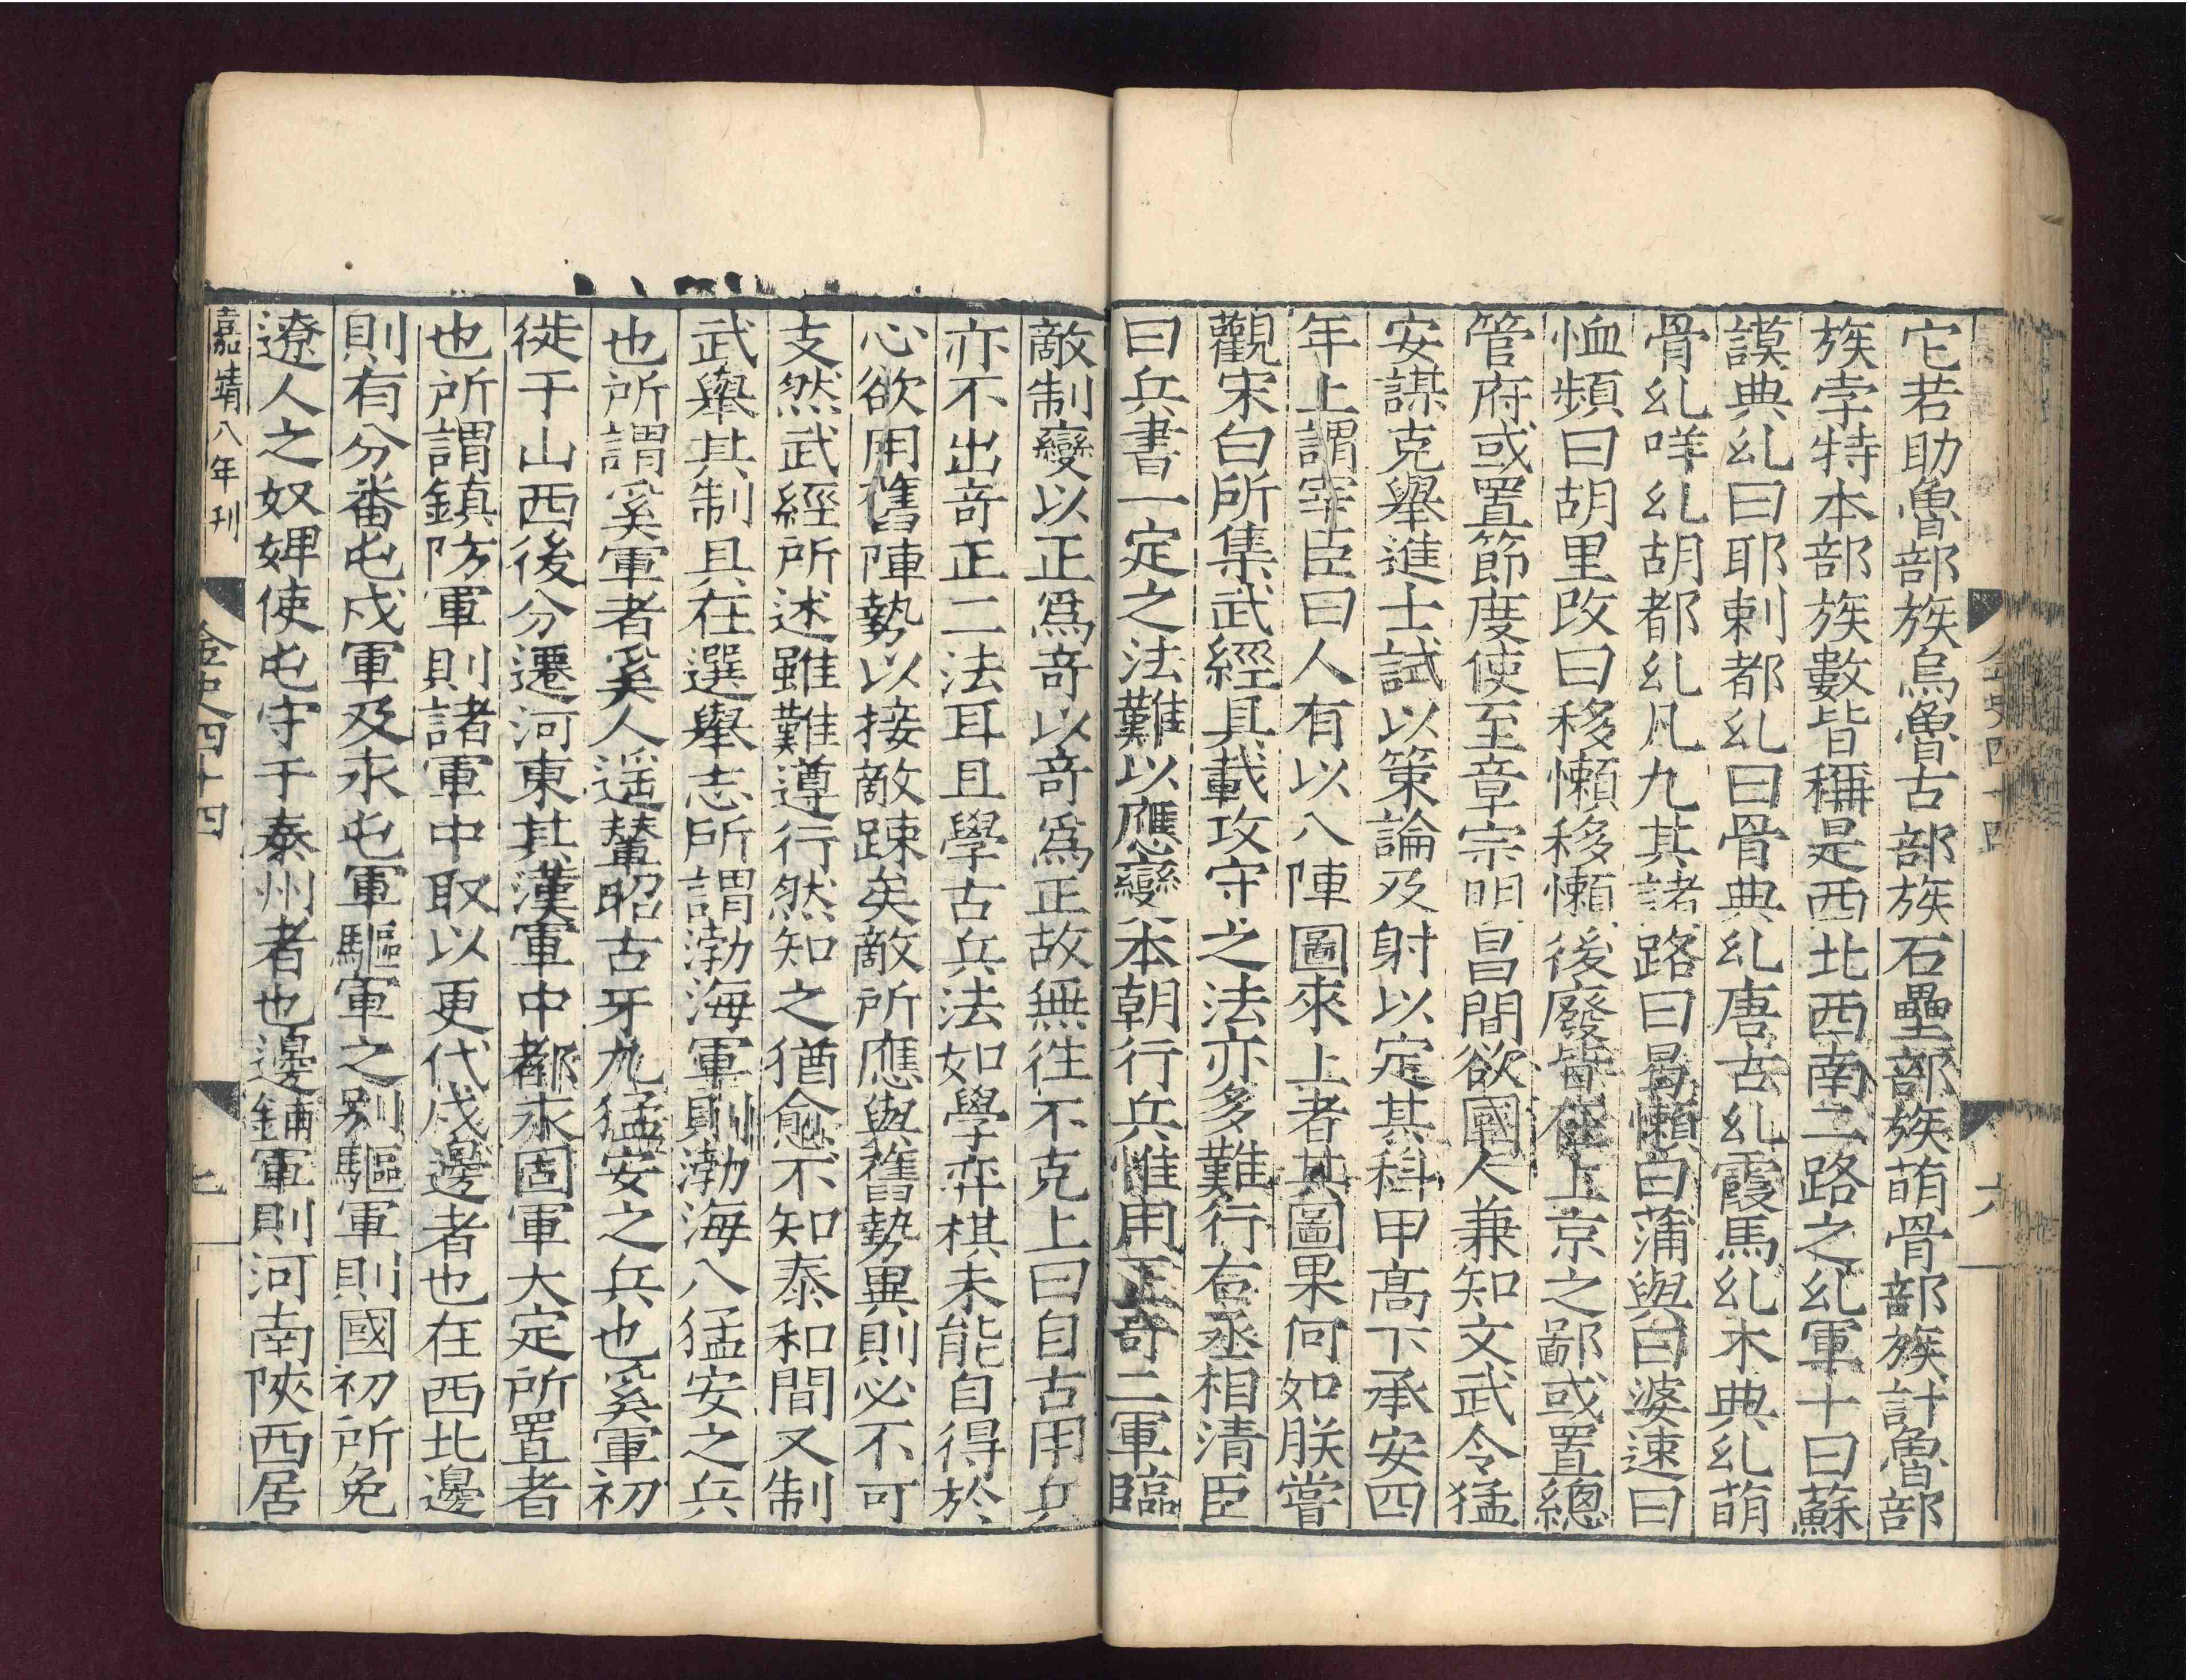 它若助魯部族烏魯古部族石壘部族萌骨部族計魯部
族孛特本部族數皆稱是西北西南二路之乣軍十曰蘇
謨典乣曰耶剌都乣曰骨典乣唐古乣霞馬乣木典乣萌
骨乣咩乣胡都乣凡九其諸路曰曷懶曰蒲與曰婆速曰
恤頻曰胡里改曰移懶移懶後廢皆在上京之鄙或置總
管府或置節度使至章宗明昌間欲國人兼知文武令猛
安謀克舉進士試以策論及射以定其科甲高下承安四
年上謂宰臣曰人有以八陣圖來上者其圖果何如朕嘗
觀宋白所集武經具載攻守之法亦多難行右丞相清臣
曰兵書一定之法難以應變本朝行兵惟用正奇二軍臨
敵制變以正爲奇以奇爲正故無徃不克上曰自古用兵
亦不出奇正二法耳且學古兵法如學弈棋未能自得於
心欲用舊陣勢以接敵踈矣敵所應與舊勢異則必不可
支然武經所述雖難遵行然知之猶愈不知泰和間又制
武舉其制具在選舉志所謂渤海軍則渤海八猛安之兵
也所謂奚軍者奚人遥輦昭古牙九猛安之兵也奚軍初
徙于山西後分遷河東其漢軍中都永固軍大定所置者
也所謂鎮防軍則諸軍中取以更代戍邊者也在西北邊
則有分番屯戍軍及永屯軍驅軍之别驅軍則國初所免
遼人之奴婢使屯守于泰州者也邊鋪軍則河南陜西居
嘉靖八年刊
金史四十四
七
金史四十四
六